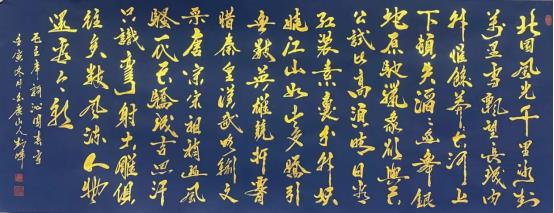 北國風光千里冰封
萬里雪飄望長城内
外惟餘莽莽大河上
下頓失滔滔山舞銀
蛇原馳蠟象欲與天
公試比高須晴日看
紅裝素裹分外妖
嬈江山如此多嬌引
無數英雄競折腰
惜秦皇漢武略輸文
采唐宗宋祖稍遜風
騷一代天驕成吉思汗
只識彎弓射大雕俱
往矣數風流人物
還看今朝
毛主席詞沁園春雪
壬寅冬月山人